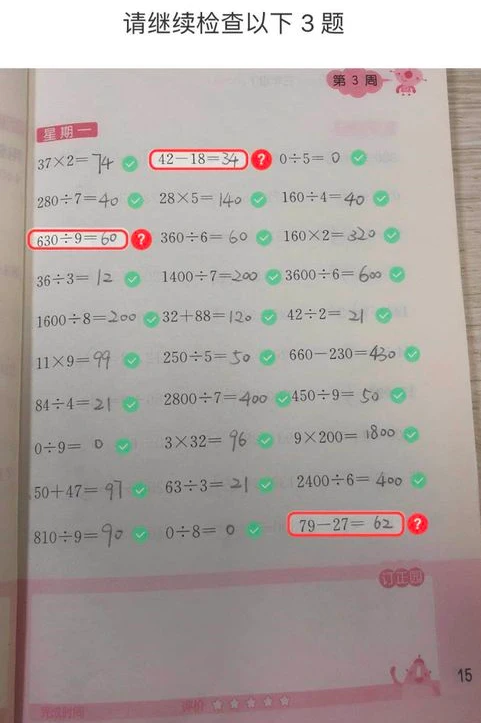 请继续检查以下 3 题
第 3 周
星期一
37×2=74 42-18=34 ? 0÷5=0
280÷7=40 28×5=140 160÷4=40
630÷9=60 ? 360÷6=60 160×2=320
36÷3=12 1400÷7=200 3600÷6=600
1600÷8=200 32+88=120 42÷2=21
11×9=99 250÷5=50 660-230=430
84÷4=21 2800÷7=400 450÷9=50
0÷9=0 3×32=96 9×200=1800
50+47=97 63÷3=21 2400÷6=400
810÷9=90 0÷8=0 79-27=62 ?
订正栏
15
评价